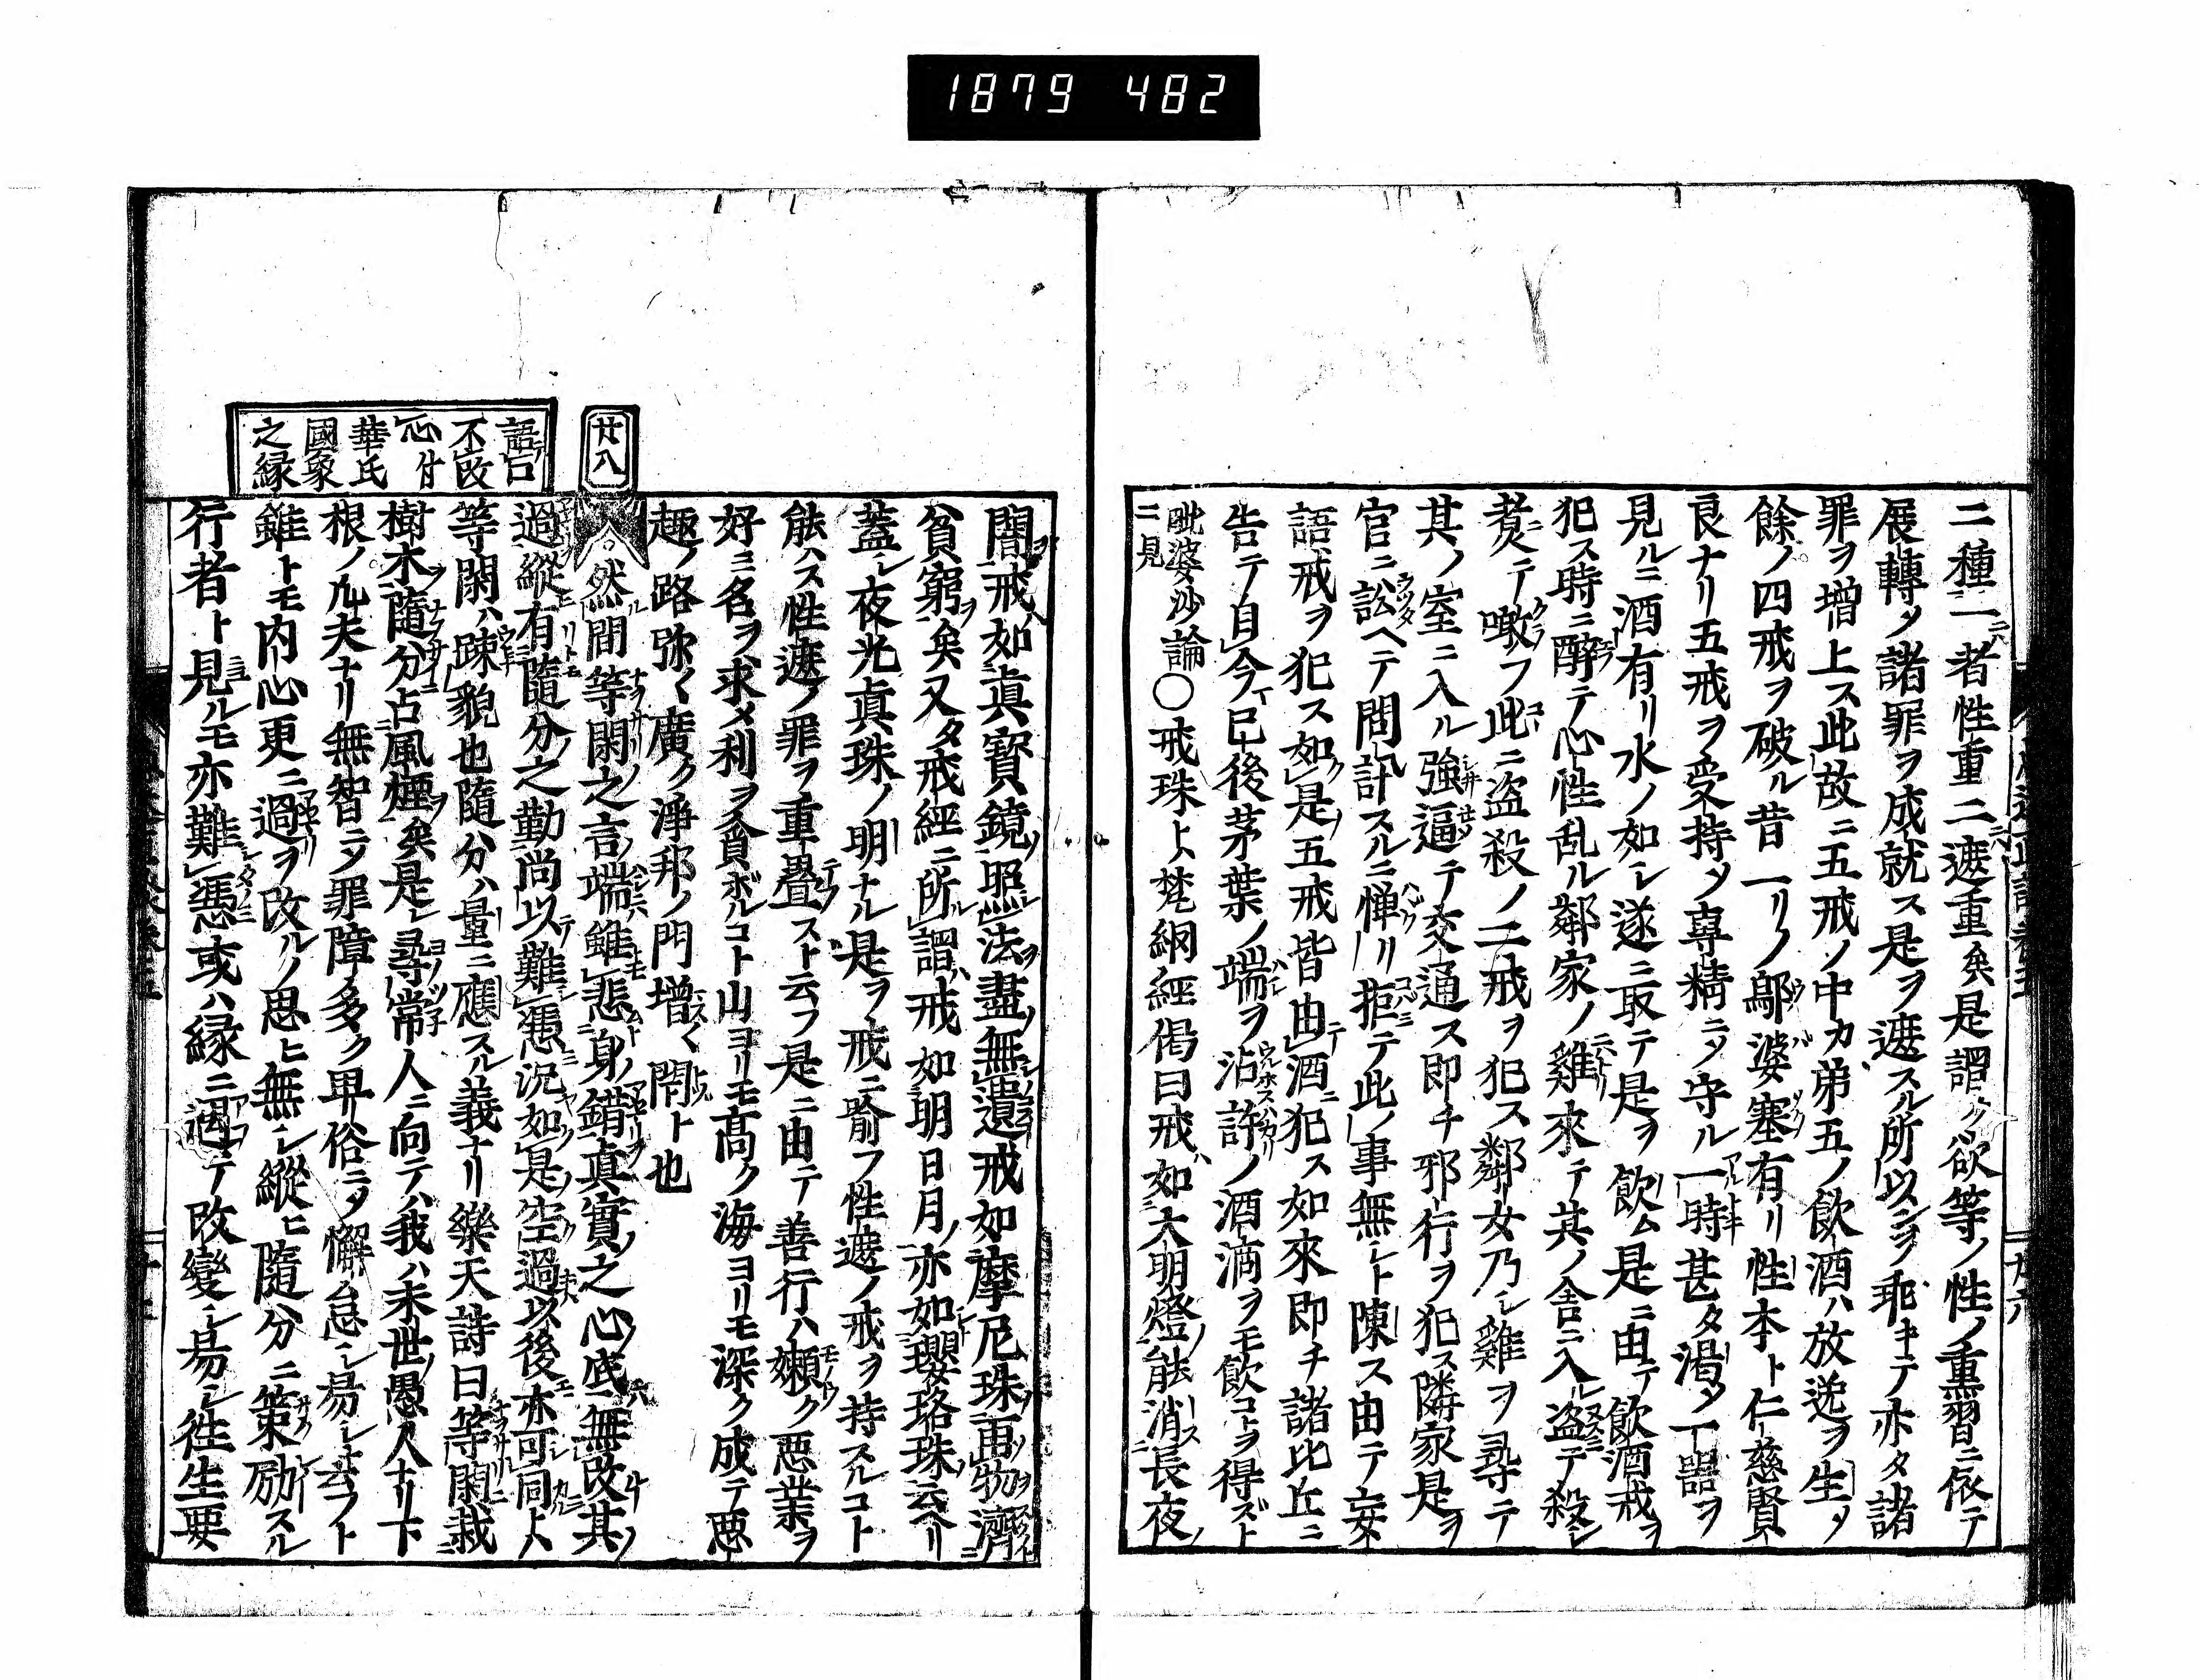 1879 482
二種一者性重二遮重矣是謂ク欲等ノ性ノ重熏習ニ依テ
展轉〆諸罪ヲ成就ス是ヲ遮スル所以ンヲ乖キテ亦タ諸
罪ヲ増上ス此故ニ五戒ノ中カ第五ノ飲酒ハ放逸ヲ生〆
餘ノ四戒ヲ破ル昔一リノ鄔婆塞有リ性本ト仁慈賢
良ナリ五戒ヲ受持〆專精ニ〆守ル一時甚タ渇〆一器ヲ
見ルニ酒有リ水ノ如シ遂ニ取テ是ヲ飲ム是ニ由テ飲酒戒ヲ
犯ス時ニ醉テ心性乱ル鄰家ノ雞來テ其ノ舎ニ入ル盗テ殺シ
煮テ噉フ此ニ盗殺ノ二戒ヲ犯ス鄰女乃シ雞ヲ尋テ
其ノ室ニ入ル強逼テ交通ス即チ邪行ヲ犯ス隣家是ヲ
官ニ訟ヘテ問計スルニ憚リ拒テ此ノ事無シト陳ス由テ妄
語戒ヲ犯ス如是五戒皆由酒犯ス如來即チ諸比丘ニ
告テ自今已後茅葉ノ端ヲ沾許ノ酒滴ヲモ飲コトヲ得ズト
毗婆沙論ニ見〇戒珠ト梵網經偈曰戒如大明燈能消長夜
闇戒如眞寳鏡照法盡無遺戒如摩尼珠雨物濟
貧窮矣又タ戒經ニ所謂戒如明日月亦如瓔珞珠云ヘリ
蓋シ夜光真珠ノ明ナル是ヲ戒ニ喩フ性遮ノ戒ヲ持スルコト
能ハス性遮ノ罪ヲ重疊スト云フ是ニ由テ善行ハ嬾ク悪業ヲ
好ミ名ヲ求メ利ヲ貪ボルコト山ヨリモ高ク海ヨリモ深ク成テ悪
趣ノ路弥く廣ク淨邦ノ門増く閇ト也
廿八
然間等閑之言端雖悲身錯真實之心底無改其
語口
不改
心付
華氏
國象
之縁
過縱有隨分之勤尚以難憑況如是空過以後亦可同ト
等閑ハ踈貌也隨分ハ量ニ應スル義ナリ樂天詩曰等閑栽
樹木隨分占風煙矣是レ尋常人ニ向テハ我ハ末世ノ愚人ナリ下
根ノ凢夫ナリ無智ニ〆罪障多ク卑俗ニ〆懈怠シ易シ云フト
雖トモ内心更ニ過ヲ改ルノ思ヒ無シ縱ヒ隨分ニ策励スル
行者ト見ルモ亦難憑或ハ縁ニ遇テ改變シ易シ徃生要